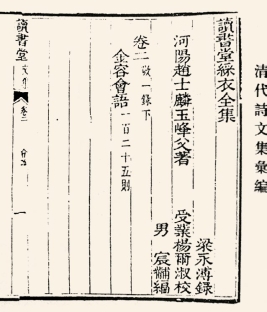 清代詩文集彙編
讀書堂綵衣全集
河陽趙士麟玉峰父著
受業楊爾淑校
梁永溥錄
男宸黼編
卷二敬一錄下
金容會語一百二十五則
讀書堂
卷二
一